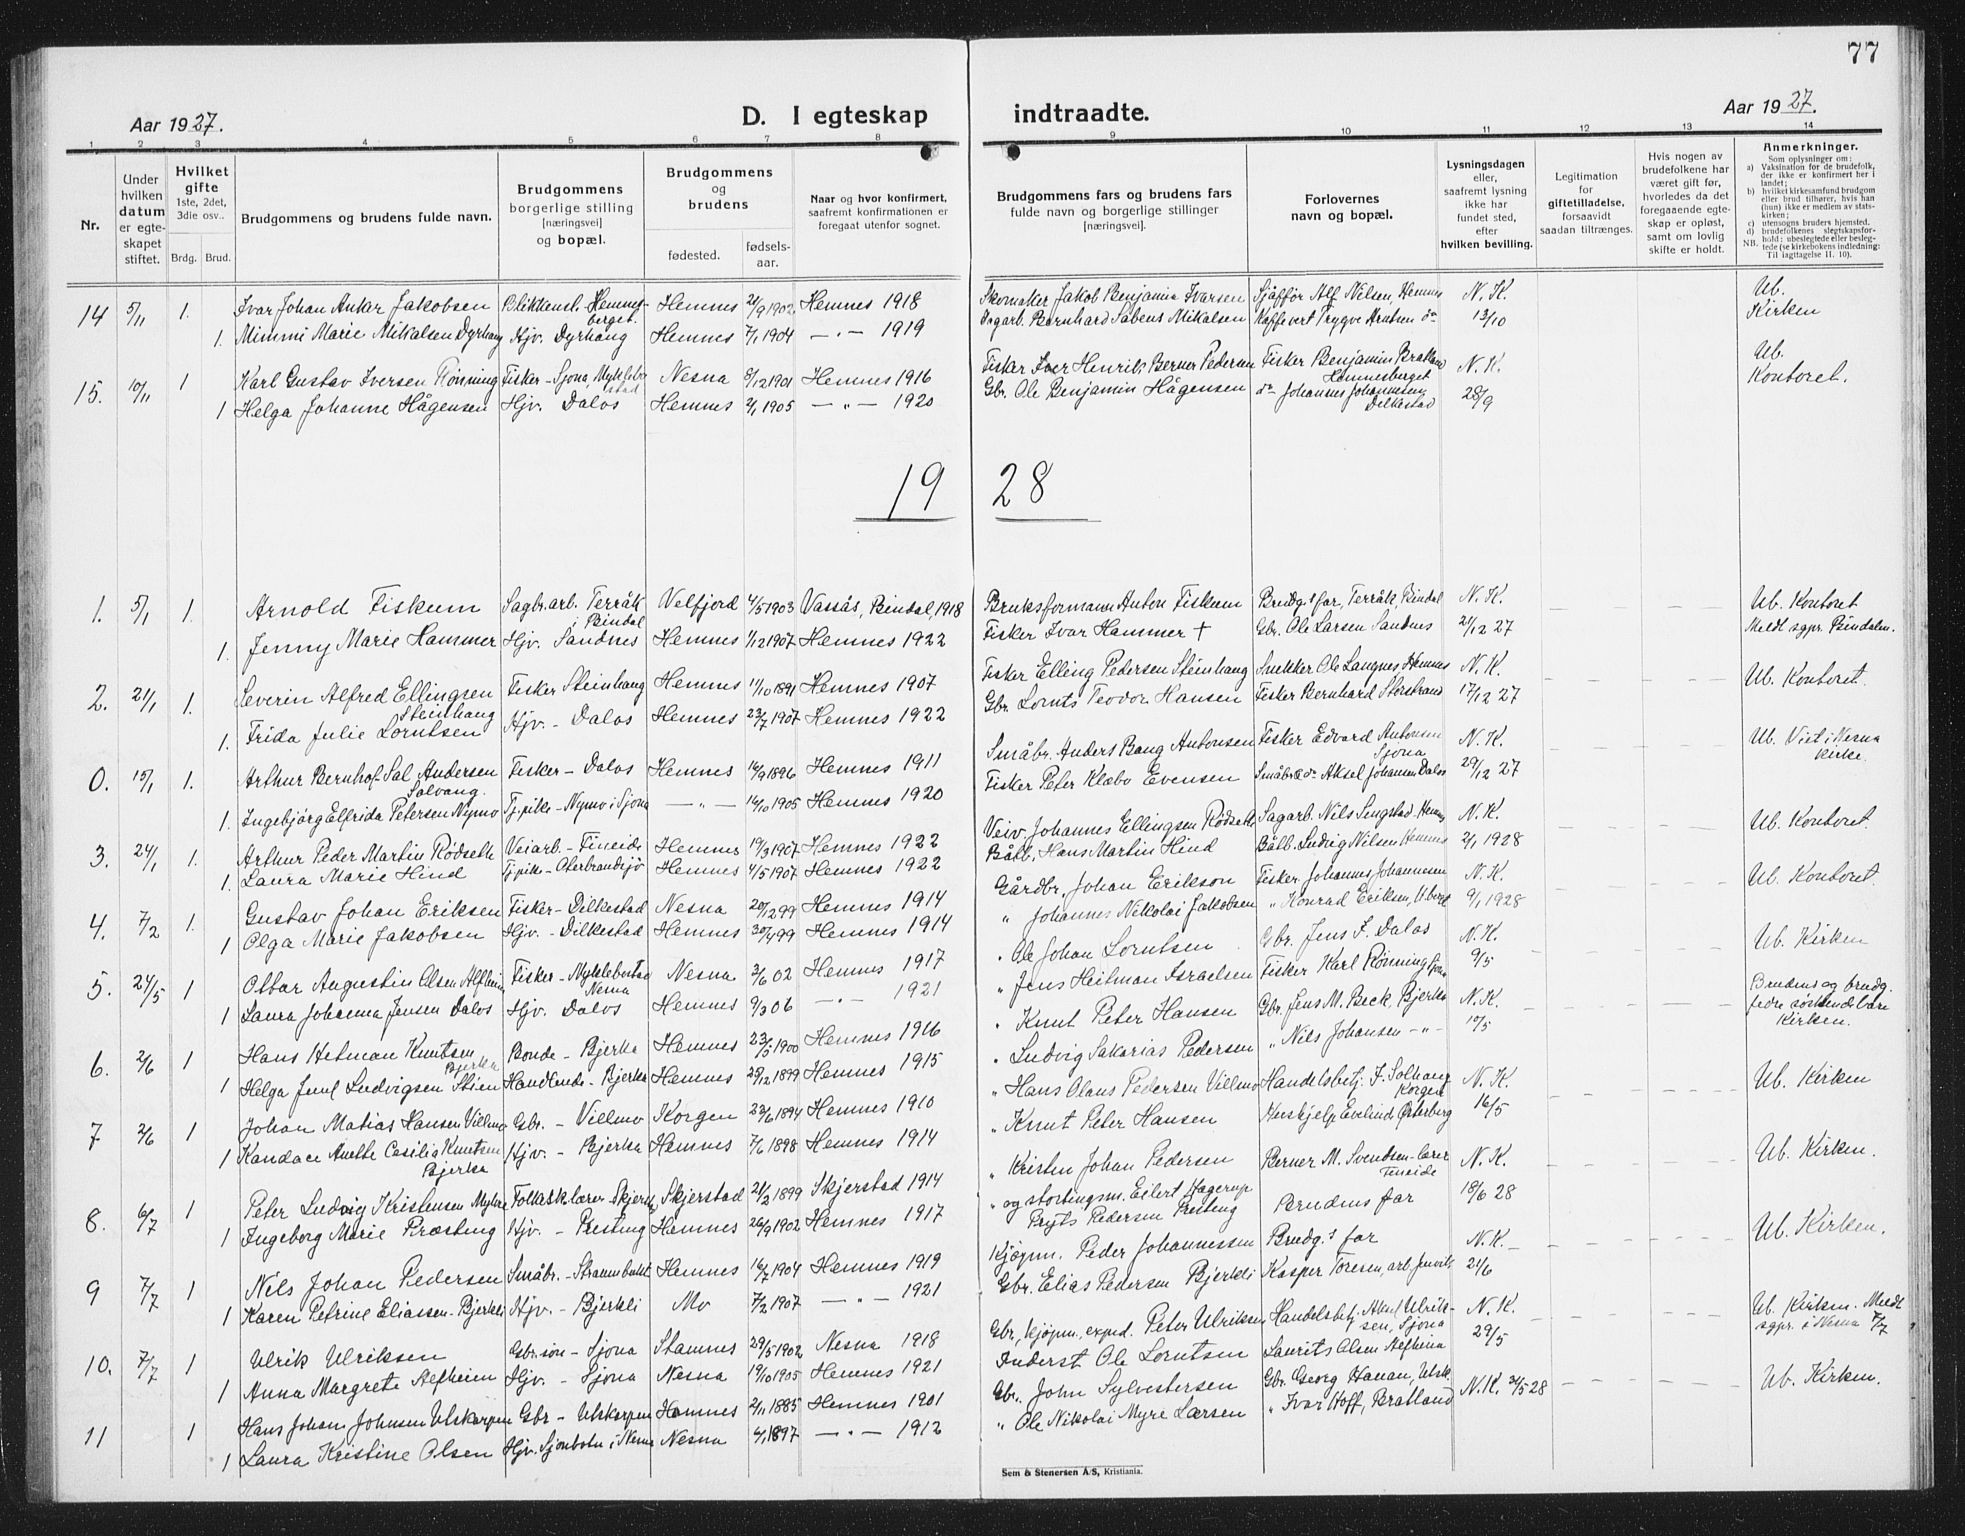 77
Aar 1927. D. I egteskap indtraadte. Aar 1927.
1 2 3 4 5 6 7 8 9 10 11 12 13 14
Nr.
Under hvilken datum er egteskapet stiftet.
Hvilket gifte 1ste, 2det, 3die osv..
Brdg. Brud.
Brudgommens og brudens fulde navn.
Brudgommens borgerlige stilling [næringsvei] og bopæl.
Brudgommens og brudens
fødested. fødsels-aar.
Naar og hvor konfirmert, saafremt konfirmationen er foregaat utenfor sognet.
Brudgommens fars og brudens fars fulde navn og borgerlige stillinger [næringsvei].
Forlovernes navn og bopæl.
Lysningsdagen eller, saafremt lysning ikke har fundet sted, efter hvilken bevilling.
Legitimation for giftetilladelse, forsaavidt saadan tiltrænges.
Hvis nogen av brudefolkene har været gift før, hvorledes da det foregaaende egteskap er opløst, samt om lovlig skifte er holdt.
Anmerkninger.
Som oplysninger om:
a) Vaksination for de brudefolk, der ikke er konfirmert her i landet;
b) hvilket kirkesamfund brudgom eller brud tilhører, hvis han (hun) ikke er medlem av statskirken;
c) utensogns bruders hjemsted.
d) brudefolkenes slegtskapsforhold: ubeslegtede eller beslegtede (se kirkebokens indledning:
NB. Til iagttagelse II. 10).
14 5/11 1. Ivar Johan Anker Jakobsen Blikkensl. Hemnesberget. Hemnes 21/9 1902 Hemnes 1918 Skomaker Jakob Benjamin Ivarsen Sjåffør Alf Nilsen, Hemnes N. K. Ub.
1. Mimmi Marie Mikalsen Dyrhaug Hjv. Dyrhaug Hemnes 7/1 1904 — " — 1919 Sagarb. Bernhard Sabens Mikalsen Kaffevert Trygve Knutsen do 13/10 Kirken
15. 10/11 1 Karl Gustav Iversen Rønning Fisker - Sjona, Myklebostad Nesna 8/12 1901 Hemnes 1916 Fisker Iver Henrik Berner Pedersen Fisker Benjamin Bratland Hemnesberget N. K. Ub.
1 Helga Johanne Hågensen Hjv. Dalos Hemnes 2/1 1905 — " — 1920 Gbr. Ole Benjamin Hågensen do Johannes Johannesen Dilkestad 28/9 Kontoret.
19 28
1. 5/1 1. Arnold Fiskum Sagbr.arb. Terråk i Bindal Velfjord 4/5 1903 Vassås, Bindal, 1918 Bruksformann Anton Fiskum Brudg.s far, Terråk, Bindal N. K. Ub. Kontoret
1. Jenny Marie Hammer Hjv. Sandnes Hemnes 1/12 1907 Hemnes 1922 Fisker Ivar Hammer + Gbr. Ole Larsen Sandnes 21/12 27 Meldt sgpr. Bindalen.
2. 21/1 1. Severin Alfred Ellingsen Steinhaug Fisker Steinhaug Hemnes 11/10 1891 Hemnes 1907 Fisker Elling Pedersen Steinhaug Snekker Ole Langnes Hemnes N. K. Ub. Kontoret.
1. Frida Julie Lorntsen Hjv. - Dalos Hemnes 23/7 1907 Hemnes 1922 Gbr. Lornts Teodor Hansen Fisker Bernhard Storstrand 17/12 27
0. 15/1 1. Arthur Bernhof Sal. Andersen Solvang. Fisker - Dalos Hemnes 14/9 1896 Hemnes 1911 Småbr. Anders Bang Antonsen Fisker Edvard Antonsen Sjona N. K. Ub. Viet i Nesna kirke.
1. Ingebjørg Elfrida Petersen Nymo Tj.pike - Nymo i Sjona — " — 14/10 1905 Hemnes 1920 Fisker Peter Klæbo Evensen Småbr. Aksel Johansen Dalos 29/12 27
3. 24/1 1. Arthur Peder Martin Rødseth Veiarb - Fineide Hemnes 19/3 1907 Hemnes 1922 Veiv. Johannes Ellingsen Rødseth Sagarb. Nils Sengstad Hemnes N. K. Ub. Kontoret.
1. Laura Marie Hind Tj.pike - Oterbrandsjø Hemnes 4/5 1907 Hemnes 1922 Båtb. Hans Martin Hind Båtb. Ludvig Nilsen Hemnes 2/1 1928
4. 7/2 1. Gustav Johan Eriksen Fisker - Dilkestad Nesna 20/12 99 Hemnes 1914 Gårdbr. Johan Erikson Fisker Johannes Johannesen N. K. Ub. Kontoret.
1 Olga Marie Jakobsen Hjv. - Dilkestad Hemnes 30/4 99 Hemnes 1914 " Johannes Nikolai Jakobsen " Konrad Eriksen, 9/1 1928
5. 24/5 1 Ottar Augustin Olsen Alfheim Fisker - Myklebostad Nesna Nesna 3/6 02 Hemnes 1917 " Ole Johan Lorntsen Gbr. Jens F. Dalos N. K. Ub. Kirken
1 Laura Johanna Jensen Dalos Hjv. Dalos Hemnes 9/3 06 — " — 1921 " Jens Heitman Israelsen Fisker Karl Rønning Sjona 9/5 Brudens og brudg. fedre søskendebarn
6. 2/6 1 Hans Hetman Knutsen Bjerka Bonde - Bjerka Hemnes 23/5 1900 Hemnes 1916 " Knut Peter Hansen Gbr. Jens M. Beck, Bjerka N. K. Kirken.
1 Helga Ludvigsen Stien Handlende - Bjerka Hemnes 28/12 1899 Hemnes 1915 " Ludvig Sakarias Pedersen " Nils Johansen - " - 10/5
7 2/6 1 Johan Matias Hansen Villmo Gbr. - Villmo Korgen 23/6 1894 Hemnes 1910 " Hans Olaus Pedersen Villmo Handelsbetj. F. Solhaug Korgen N. K. Ub. Kirken
1 Kandace Anette Cesilie Knutsen Bjerka Hjv. - Bjerka Hemnes 7/6 1898 Hemnes 1914 " Knut Peter Hansen Evelind Østerberg 16/5
8. 6/7 1 Peter Ludvig Kristensen Myhre Folkesk.lærer Skjerstad Skjerstad 21/2 1899 Skjerstad 1914 " Kristen Johan Pedersen Berner M. Svendsen - lærer Fineide N. K. Ub. Kirken.
1 Ingeborg Marie Præsteng Hjv. - Presteng Hemnes 26/9 1902 Hemnes 1917 " og stortingsm. Eilert Hagerup Pryts Pedersen Presteng Brudens far 18/6 28
9 7/7 1 Nils Johan Pedersen Småbr. - Straumbukt Hemnes 16/7 1904 Hemnes 1919 Kjøpm. Peder Johannessen Brudg.s far N. K. Ub. Kirken.
1 Karen Petrine Eliassen - Bjerkli Hjv. - Bjerkli Mo 7/2 1907 — " — 1921 Gbr. Elias Pedersen Bjerkli Kasper Toresen, arb. 21/6
10. 7/7 1 Ulrik Ulriksen Gbr.søn - Sjona Stamnes 29/5 1902 Nesna 1918 Gbr., kjøpm., exped. Peter Ulriksen Handelsbetj. Aksel Ulriksen, Sjona N. K. Ub. Kirken. Meldt sgpr. i Nesna 7/7
1 Anna Margrete Alfheim Hjv. - Sjona Nesna 19/10 1905 Hemnes 1921 Inderst Ole Lorntsen Laurits Olsen Alfheim 29/5
11 1 Hans Johan Johnsen Ulskarpen Gbr - Ulskarpen Hemnes 2/11 1885 Hemnes 1901 Gbr. John Sylvestersen Gbr. Georg Hanan, Ulsk. N. K. 31/5 28 Ub. Kirken.
1 Laura Kristine Olsen Hjv. Sjonbotn i Nesna Nesna 1897 — " — 1912 " Ole Nikolai Myre Larsen " Ivar Hoff, Bratland
Sem & Stenersen A/S, Kristiania.